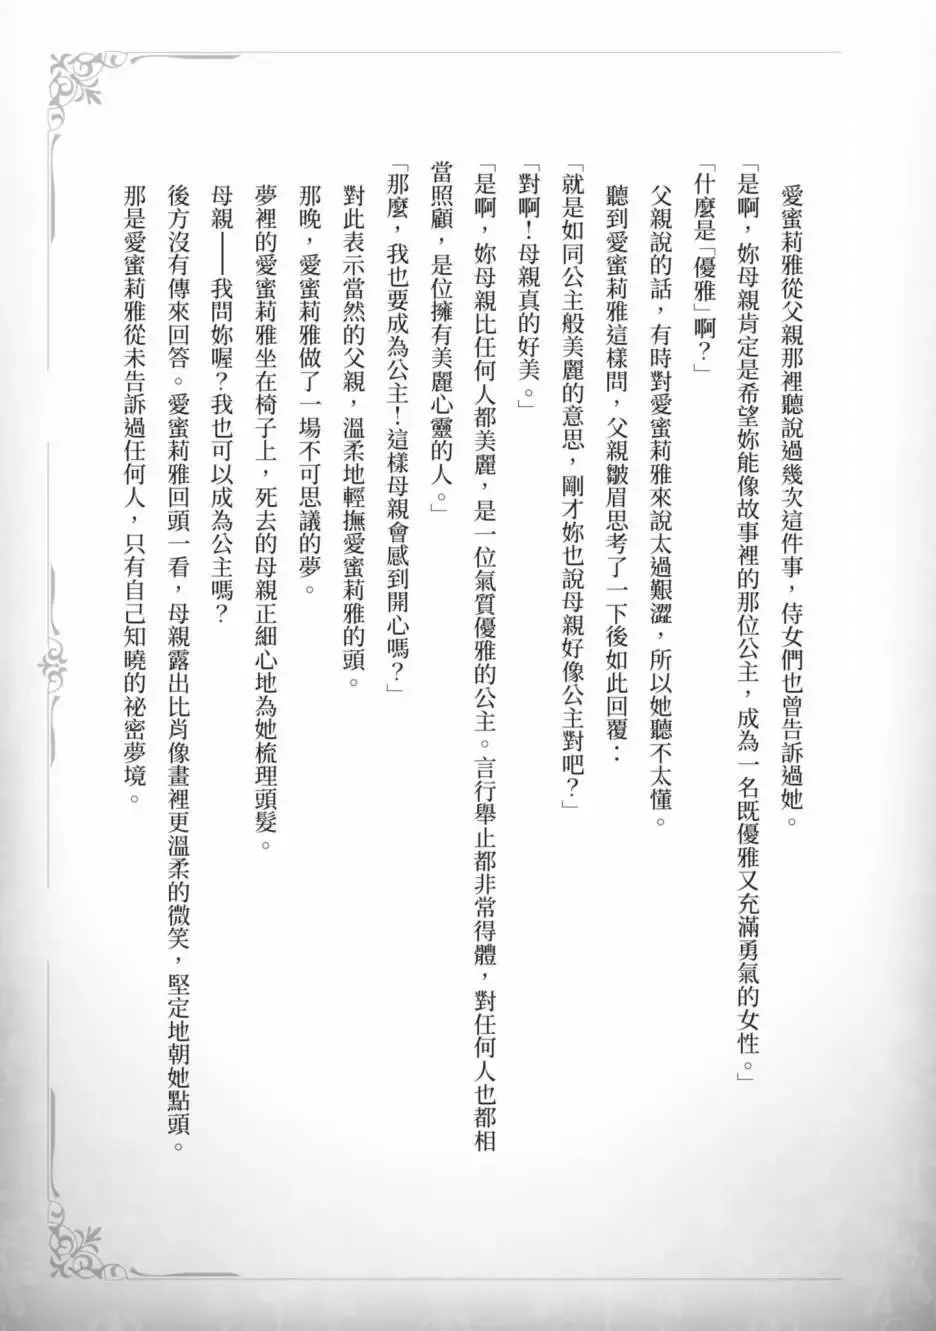 愛蜜莉雅從父親那裡聽說過幾次這件事，侍女們也曾告訴過她。
「是啊，妳母親肯定是希望妳能像故事裡的那位公主，成為一名既優雅又充滿勇氣的女性。」
「什麼是「優雅」啊？」
父親說的話，有時對愛蜜莉雅來說太過艱澀，所以她聽不太懂。
聽到愛蜜莉雅這樣問，父親皺眉思考了一下後如此回覆：
「就是如同公主般美麗的意思，剛才妳也說母親好像公主對吧？」
「對啊！母親真的好美。」
「是啊，妳母親比任何人都美麗，是一位氣質優雅的公主。言行舉止都非常得體，對任何人也都相
當照顧，是位擁有美麗心靈的人。」
「那麼，我也要成為公主！這樣母親會感到開心嗎？」
對此表示當然的父親，溫柔地輕撫愛蜜莉雅的頭。
那晚，愛蜜莉雅做了一場不可思議的夢。
夢裡的愛蜜莉雅坐在椅子上，死去的母親正細心地為她梳理頭髮。
母親——我問妳喔？我也可以成為公主嗎？
後方沒有傳來回答。愛蜜莉雅回頭一看，母親露出比肖像畫裡更溫柔的微笑，堅定地朝她點頭。
那是愛蜜莉雅從未告訴過任何人，只有自己知曉的祕密夢境。